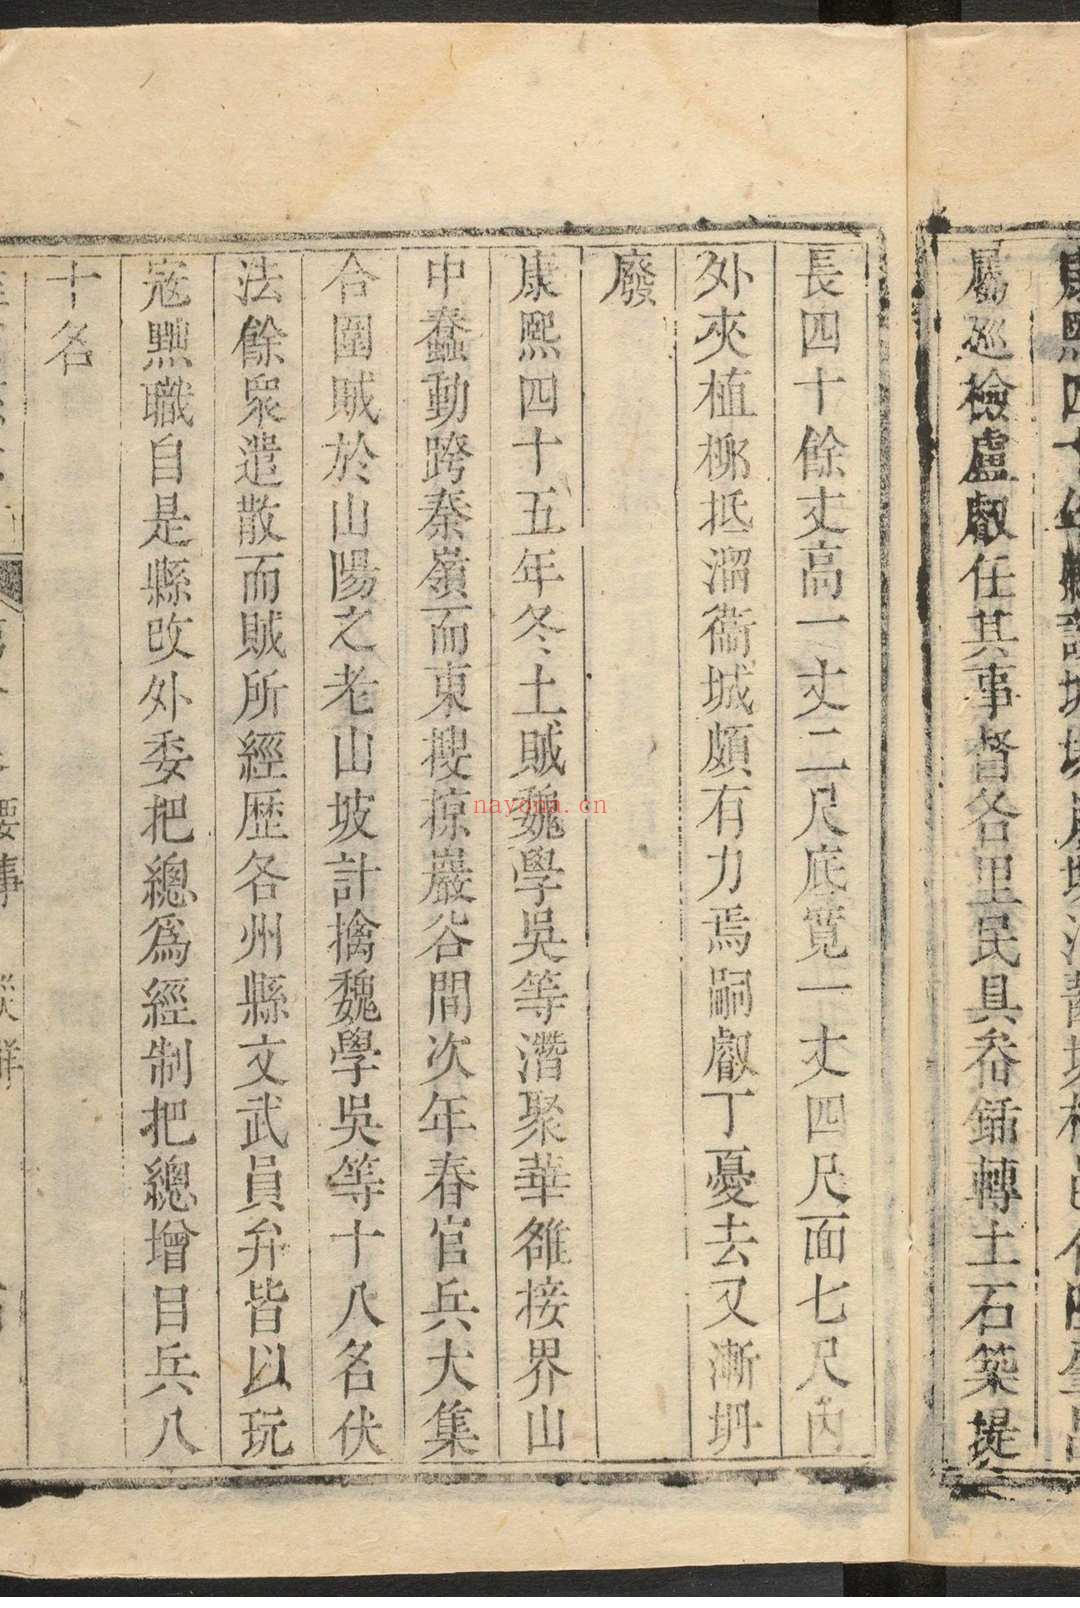 屬廵檢盧叡任其事督各里民具畚鍤轉土石築提
長四十餘丈高一丈二尺底寬一丈四尺面七尺內
外夾植柳抵溜衞城頗有力焉嗣叡丁憂去又漸坍
廢
康熙四十五年冬土賊魏學吳等潛聚華雒接界山
中蠢動跨秦嶺而東搜掠巖谷間次年春官兵大集
合圍賊於山陽之老山坡計擒魏學吳等十八名伏
法餘衆遣散而賊所經歷各州縣文武員弁皆以玩
寇黜職自是縣改外委把總爲經制把總增目兵八
十名
nayona.cn